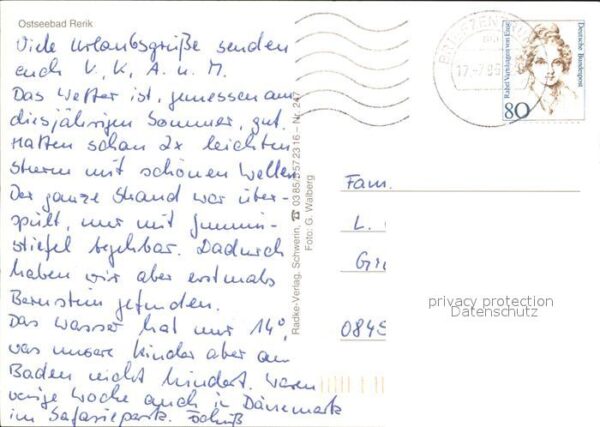 Ostseebad Rerik
Viele Urlaubsgrüße senden
euch V., K., A. u. M.
Das Wetter ist, gemessen am
diesjährigen Sommer, gut.
Hatten schon 2x leichten
Sturm mit schönen Wellen.
Der ganze Strand war über-
spült, nur mit Gummi-
stiefel begehbar. Dadurch
haben wir aber erstmals
Bernstein gefunden.
Das Wasser hat nur 14°,
was unsere Kinder aber am
Baden nicht hindert. Waren
vorige Woche auch in Dänemark
im Safaripark. Tschüß
Radke-Verlag, Schwerin, ☎ 03 85/5 57 23 16 – Nr. 247
Foto: G. Walberg
BRIEFZENTRUM
17.-7.96
Rahel Varnhagen von Ense
Deutsche Bundespost
80
Fam.
L.
0849
privacy protection
Datenschutz